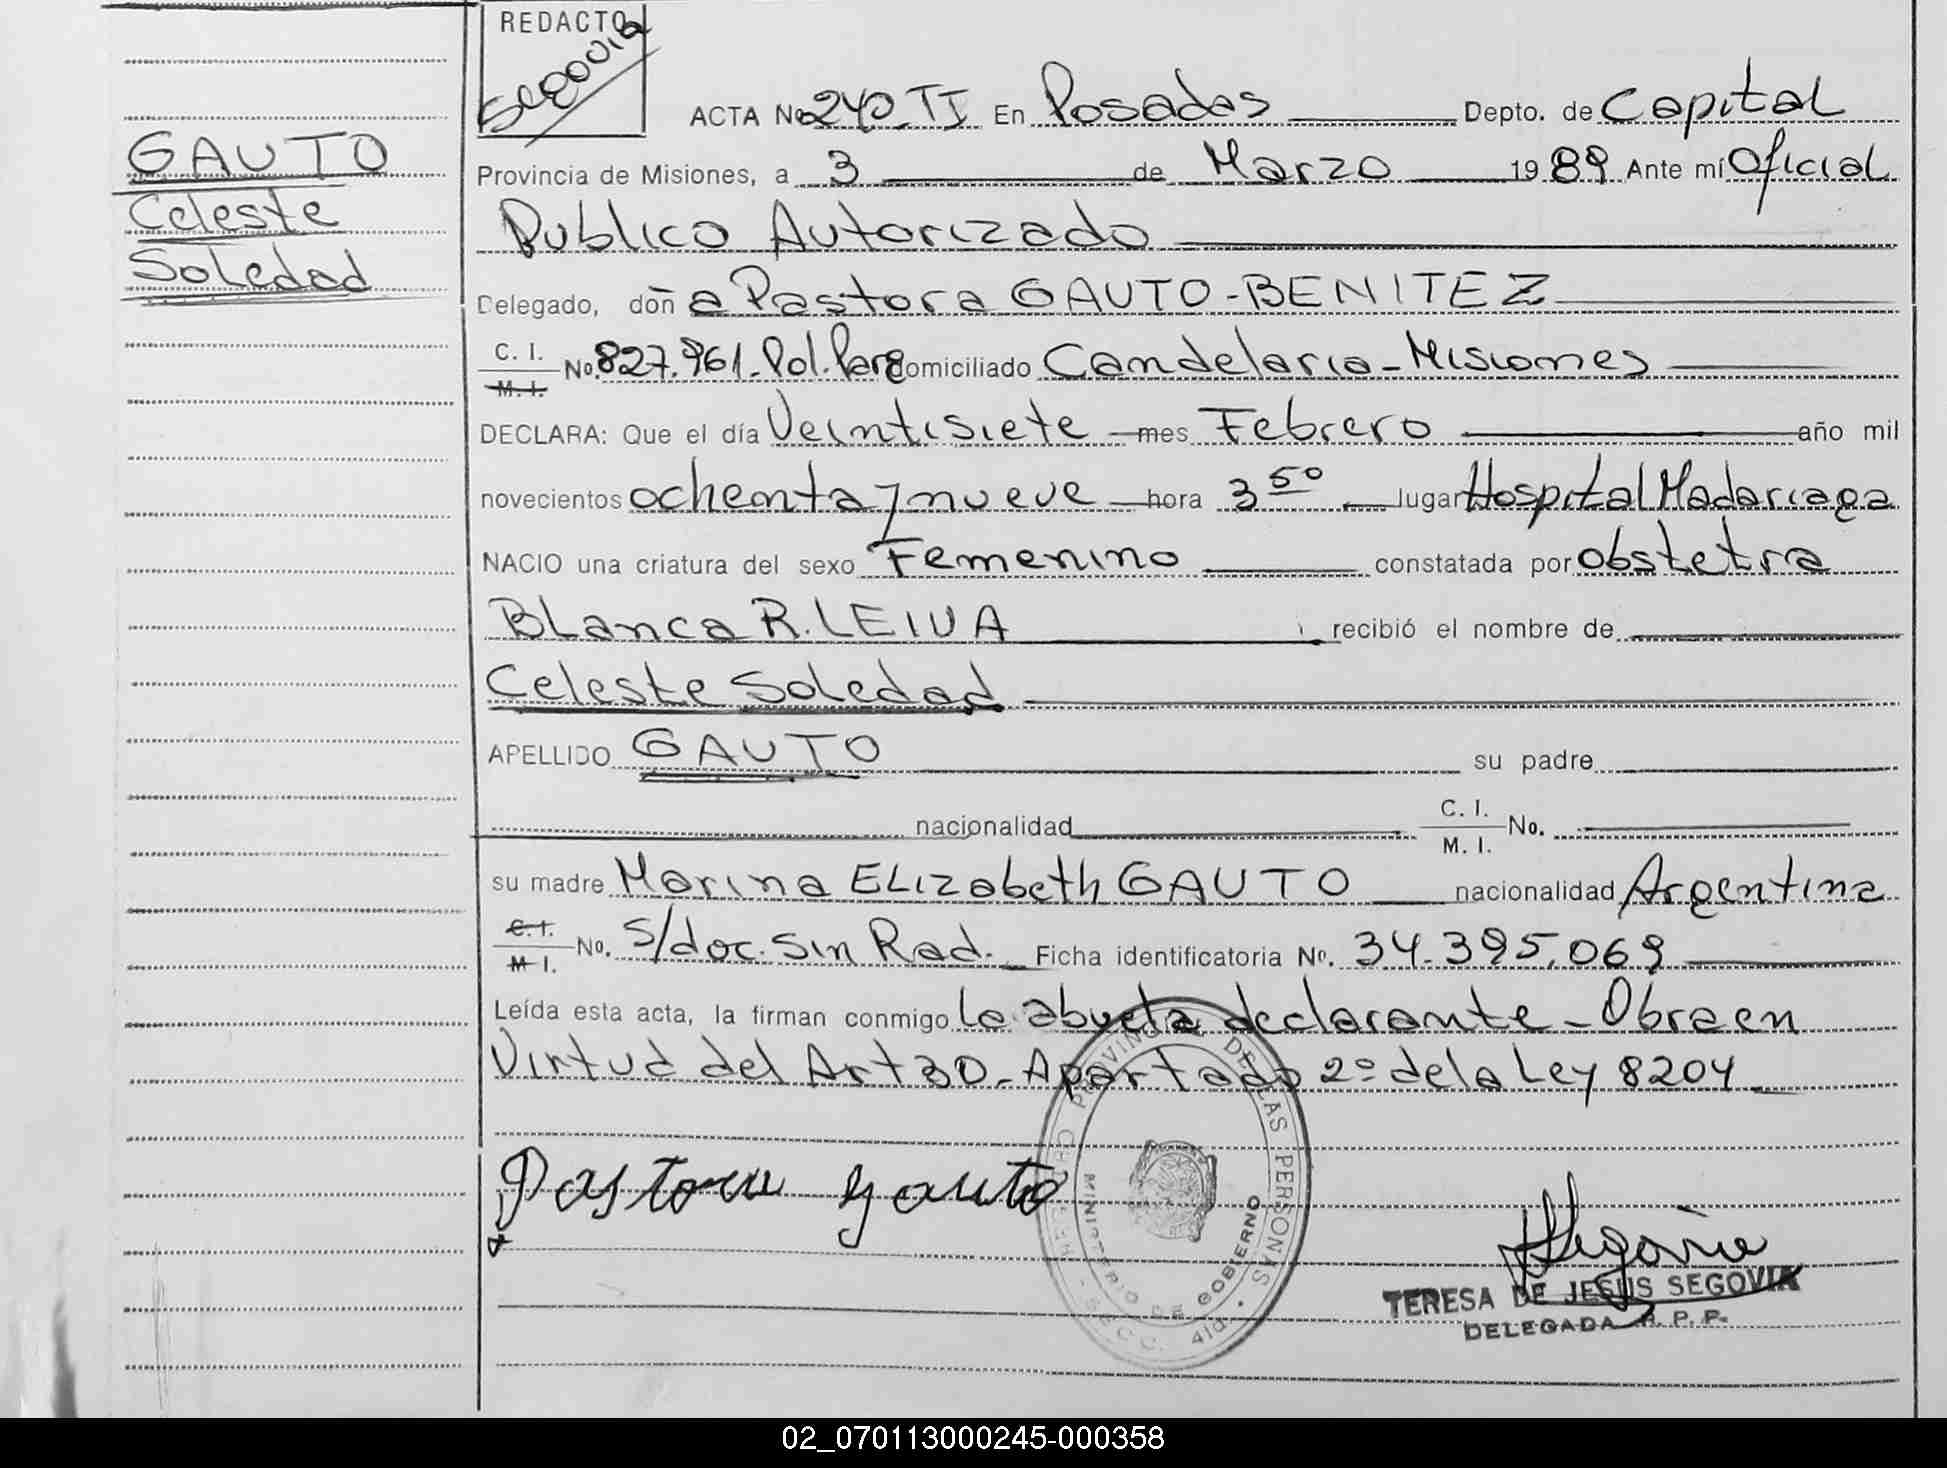 REDACTO
Segovia
GAUTO
Celeste
Soledad
ACTA No 240-TI En Posadas Depto. de Capital
Provincia de Misiones, a 3 de Marzo 1989 Ante mí Oficial
Publico Autorizado
Delegado, doña Pastora GAUTO-BENITEZ
C. I. M. I. No. 827.961-Pol. Parg domiciliado Candelaria-Misiones
DECLARA: Que el día Veintisiete mes Febrero año mil
novecientos ochenta y nueve hora 3 50 lugar Hospital Madariaga
NACIO una criatura del sexo Femenino constatada por obstetra
Blanca R. LEIVA recibió el nombre de
Celeste Soledad
APELLIDO GAUTO su padre
nacionalidad C. I. M. I. No.
su madre Marina ELizabeth GAUTO nacionalidad Argentina
C. I. M. I. No. S/doc. Sin Rad. Ficha identificatoria No. 34.395.069
Leída esta acta, la firman conmigo la abuela declarante - Obra en
Virtud del Art 30 - Apartado 2º de la Ley 8204
Pastora Gauto
PROVINCIAL DE LAS PERSONAS
MINISTERIO DE GOBIERNO
Segovia
TERESA DE JESUS SEGOVIA
DELEGADA R. P. P.
02_070113000245-000358